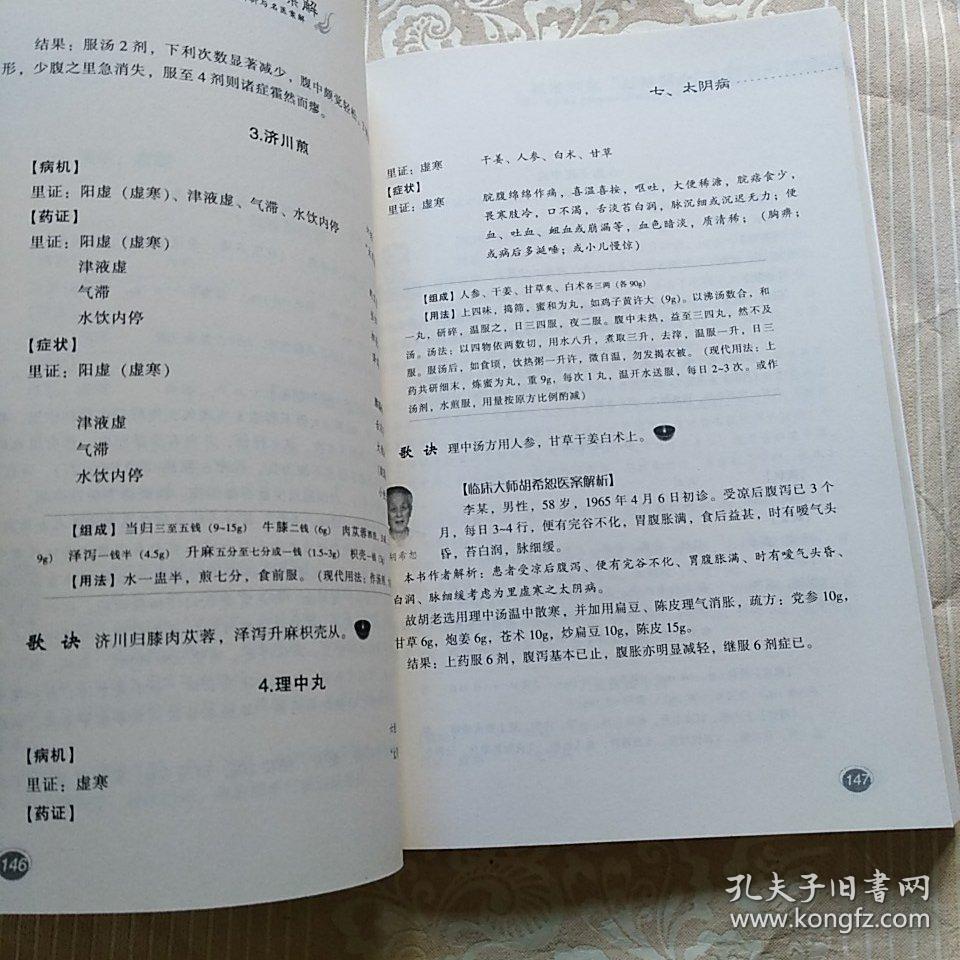 结果：服汤2剂，下利次数显著减少，腹中
形，少腹之里急消失，服至4剂则诸症霍然而瘳。
3.济川煎
【病机】
里证：阳虚（虚寒）、津液虚、气滞、水饮内停
【药证】
里证：阳虚（虚寒）
津液虚
气滞
水饮内停
【症状】
里证：阳虚（虚寒）
津液虚
气滞
水饮内停
【组成】当归三至五钱（9~15g） 牛膝二钱（6g） 肉苁蓉
9g） 泽泻一钱半（4.5g） 升麻五分至七分或一钱（1.5~3g） 枳壳一钱
【用法】水一盅半，煎七分，食前服。（现代用法：作汤剂，
歌诀 济川归膝肉苁蓉，泽泻升麻枳壳从。
4.理中丸
【病机】
里证：虚寒
【药证】
146
七、太阴病
里证：虚寒 干姜、人参、白术、甘草
【症状】
里证：虚寒 脘腹绵绵作痛，喜温喜按，呕吐，大便稀溏，脘痞食少，
畏寒肢冷，口不渴，舌淡苔白润，脉沉细或沉迟无力；便
血、吐血、衄血或崩漏等，血色暗淡，质清稀；（胸痹；
或病后多涎唾；或小儿慢惊）
【组成】人参、干姜、甘草炙、白术各三两（各90g）
【用法】上四味，捣筛，蜜和为丸，如鸡子黄许大（9g）。以沸汤数合，和
一丸，研碎，温服之，日三四服，夜二服。腹中未热，益至三四丸，然不及
汤。汤法：以四物依两数切，用水八升，煮取三升，去滓，温服一升，日三
服。服汤后，如食顷，饮热粥一升许，微自温，勿发揭衣被。（现代用法：上
药共研细末，炼蜜为丸，重9g，每次1丸，温开水送服，每日2~3次。或作
汤剂，水煎服，用量按原方比例酌减）
歌诀 理中汤方用人参，甘草干姜白术上。
【临床大师胡希恕医案解析】
李某，男性，58岁，1965年4月6日初诊。受凉后腹泻已3个
月，每日3~4行，便有完谷不化，胃腹胀满，食后益甚，时有嗳气头
昏，苔白润，脉细缓。
胡希恕
本书作者解析：患者受凉后腹泻、便有完谷不化、胃腹胀满、时有嗳气头昏、
白润、脉细缓考虑为里虚寒之太阴病。
故胡老选用理中汤温中散寒，并加用扁豆、陈皮理气消胀，疏方：党参10g，
甘草6g，炮姜6g，苍术10g，炒扁豆10g，陈皮15g。
结果：上药服6剂，腹泻基本已止，腹胀亦明显减轻，继服6剂症已。
147
孔夫子旧书网
www.kongfz.com